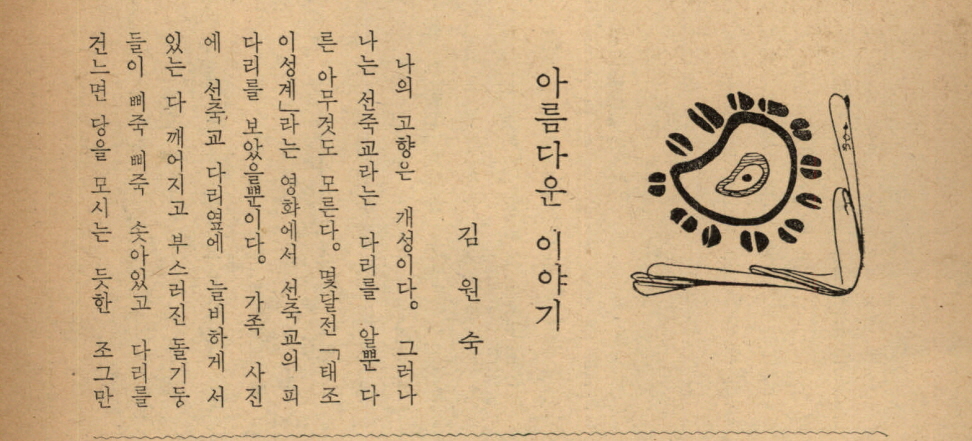 아름다운 이야기
김원숙
나의 고향은 개성이다. 그러나
나는 선죽교라는 다리를 알뿐 다
른 아무것도 모른다. 몇달전 「태조
이성계」라는 영화에서 선죽교의 피
다리를 보았을뿐이다. 가족 사진
에 선죽교 다리옆에 늘비하게 서
있는 다 깨어지고 부스러진 돌기둥
들이 삐죽 삐죽 솟아있고 다리를
건느면 당을 모시는 듯한 조그만